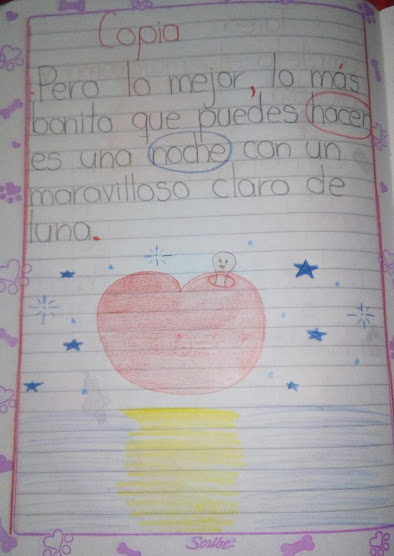 Copia
Pero lo mejor, lo más
bonito que puedes hacer
es una noche con un
maravilloso claro de
luna.
Scribe